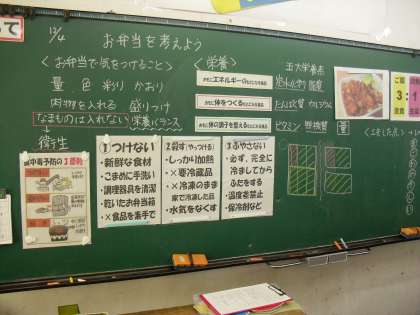 12/4 お弁当を考えよう
<お弁当で気をつけること>
量 色 彩り かおり
肉物を入れる 盛りつけ
なまものは入れない 栄養バランス
→ 衛生
<栄養>
おもにエネルギーのもとになる食品
おもに体をつくるもとになる食品
おもに体の調子を整えるもとになる食品
五大栄養素
炭水化物 脂質
たんぱく質 カルシウム
ビタミン 無機質
量
ご飯
3:1
主食
<工夫した点>
食中毒予防の3原則
①つけない
・新鮮な食材
・こまめに手洗い
・調理器具を清潔
・乾いたお弁当箱
・×食品を素手で
②殺す(やっつける)
・しっかり加熱
・×要冷蔵品
・×冷凍のまま
家で冷凍した品
・水気をなくす
③ふやさない
・必ず、完全に
冷ましてから
ふたをする
・温度差禁止
・保冷剤など